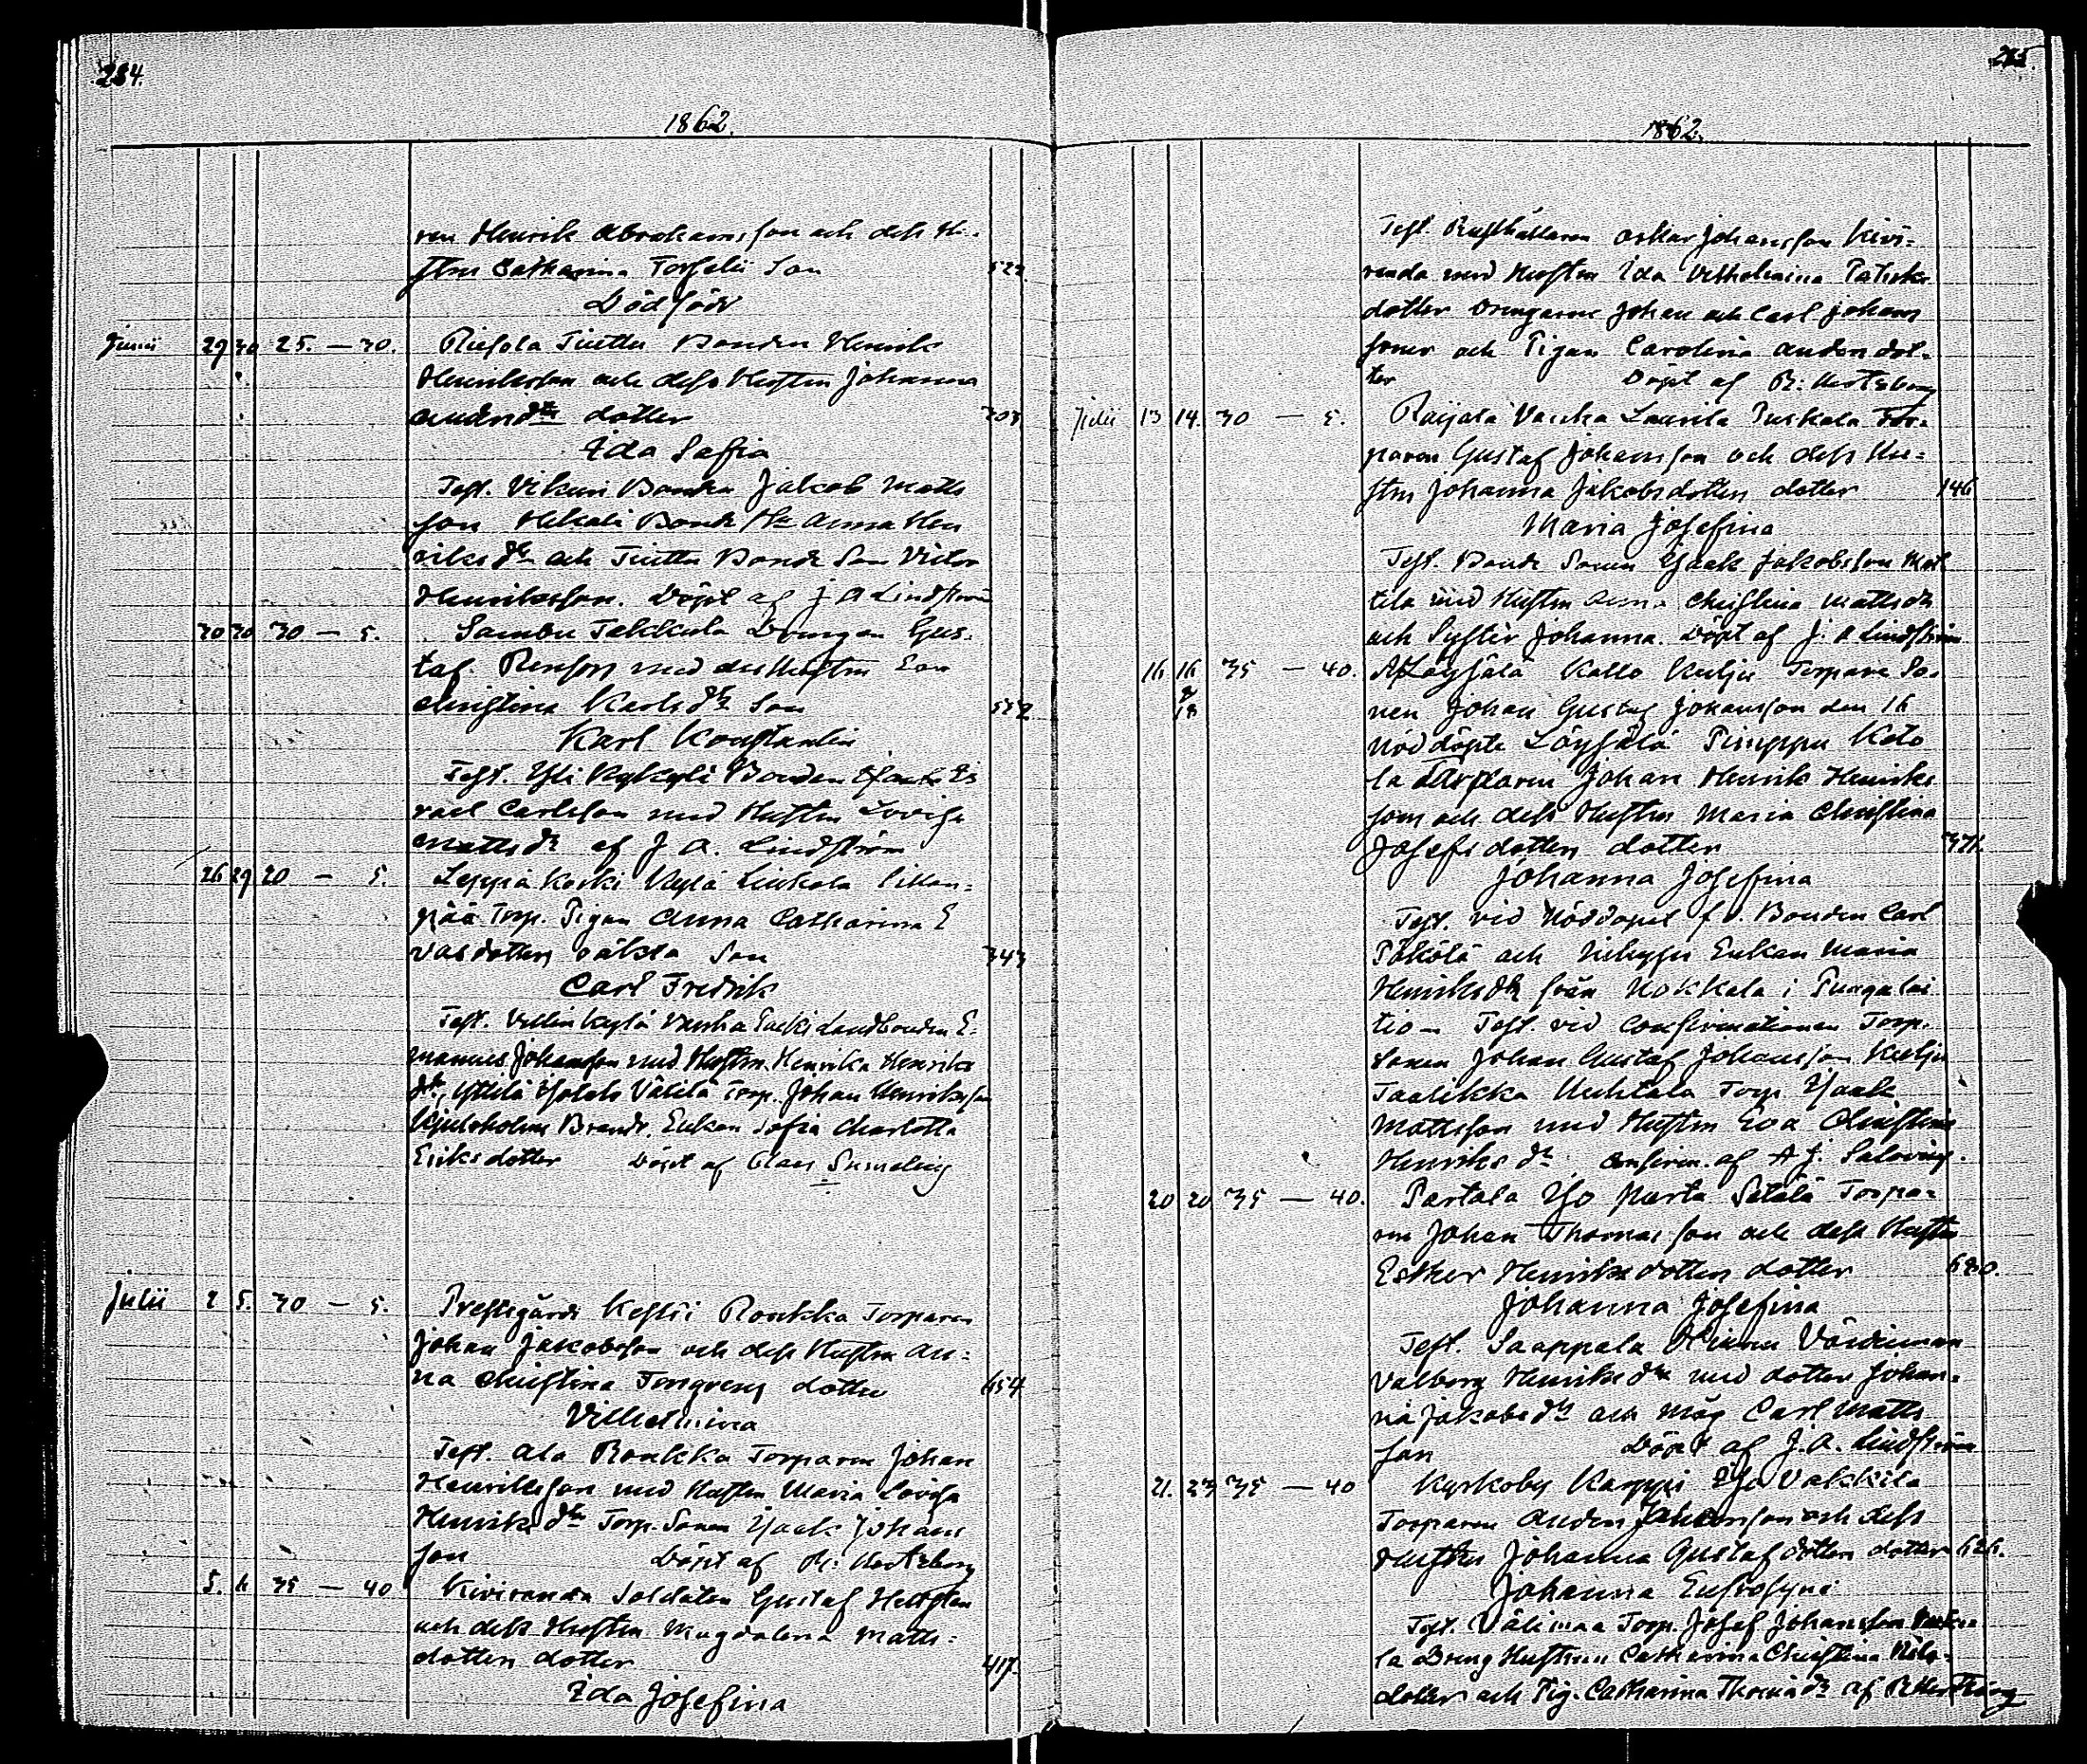 284.
1862.
ren Henrik Abrahamsson och dess Hu-
strus Catharina Torselii Son 522.
Dödfödd
Junii 29 30 25. — 30. Riesola Tuittu Bonden Henrik
Henriksson och dess Hustru Johanna
Andersdtr dotter 303
Ida Sofia
Test. Vikuri Bonden Jakob Matts
son Hekali Bonde Hu Anna Hen
riksdtr och Tuittu Bonde Son Victor
Henriksson. Döpt af J A Lindström
30 30 30 — 5. Sambu Takkula Drängen Gus-
taf Renfors med dess Hustru Eva
Christina Karlsdtr Son 522
Karl Konstantin
Test. Yli Kykyli Bonden Is
rael Carlsson med Hustru Lovisa
Mattsdr af J A. Lindström
26 29 20 — 5. Leppäkoski Kylä Liukola
pää Torp. Pigan Anna Catharina E
vasdotters oäkta Son 343
Carl Fredrik
Test. Vellinkylä Vanha Landbonden E-
manuel Johansson med Hustru Henrika Henriks
dr, Yttilä Isotalo Välilä Torp. Johan Henriksson
Kjuloholms Brandv. Enkan Sofia Charlotta
Eriksdotter Döpt af Claes Sumeling
Julii 2 5. 30 — 5. Prestgårds Kestii Ronkka Torparen
Johan Jakobsson och dess Hustru An-
na Christina Tongrens dotter 654
Vilhelmina
Test. Ala Ronkka Torparen Johan
Henriksson med Hustru Maria Lovisa
Henriksdtr Torp. Sonen Isaak Johans
son Döpt af R: Hertzberg
5. 6 35 — 40 Kiviranda Soldaten Gustaf Hellsten
och dess Hustru Magdalena Matts-
dotters dotter 417.
Ida Josefina
285.
1862.
Test. Rusthållaren Oskar Johansson Kivi-
randa med Hustru Ida Vilhelmina Patriks
dotter Drengarne Johan och Carl Johans
soner och Pigan Carolina Anders dot-
ter Döpt af R: Hertzberg
Julii 13 14. 30 — 5. Raijala Vanha Laurila Puskala Tor-
paren Gustaf Johansson och dess Hu-
strus Johanna Jakobsdotters dotter 146
Maria Josefina
Test. Bonde Sonen Isaak Jakobsson Mat
tila med Hustru Anna Christina Mattsdr
och Syster Johanna. Döpt af J. A Lindström
16 16 & 18 35 — 40. Af Löysälä Kallo Kulju Torpare So-
nen Johan Gustaf Johansson den 16
Nöddöpte Löysälä Pimppu Koto
la Torparen Johan Henrik Henriks
son och dess Hustrus Maria Christina
Josefs dotters dotter 371.
Johanna Josefina
Test. vid Nöddopet f. d. Bonden Carl
Päkölä och Inhyses Enkan Maria
Henriksdtr från Nokkala i Pungalai
tio – Test. vid Confirmationen Torp.
Sonen Johan Gustaf Johansson Kulju
Taalikka Huhtala Torp. Isaak
Mattsson med Hustru Eva Christina
Henriksdr, Confirm. af A J. Salovius.
20 20 35 — 40. Partala Iso Murto Sälälä Torpa-
ren Johan Thomasson och dess Hustru
Esther Henriksdotters dotter 680.
Johanna Josefina
Test. Saappala Värdinnan
Valborg Henriksdr med dotter Johan-
na Jakobsdtr och Måg Carl Matts
son Döpt af J. A. Lindström
21. 23 35 — 40 Kyrkoby Karppi Iso Vakkila
Torparen Anders Johansson och dess
Hustru Johanna Gustafsdotters dotter 626.
Johanna Eufrosyne
Test. Välimaa Torp. Josef Johansson
la Dreng Hustrun Catharina Christina Nils-
dotter och Pig. Catharina Thomadr af Petter Thång